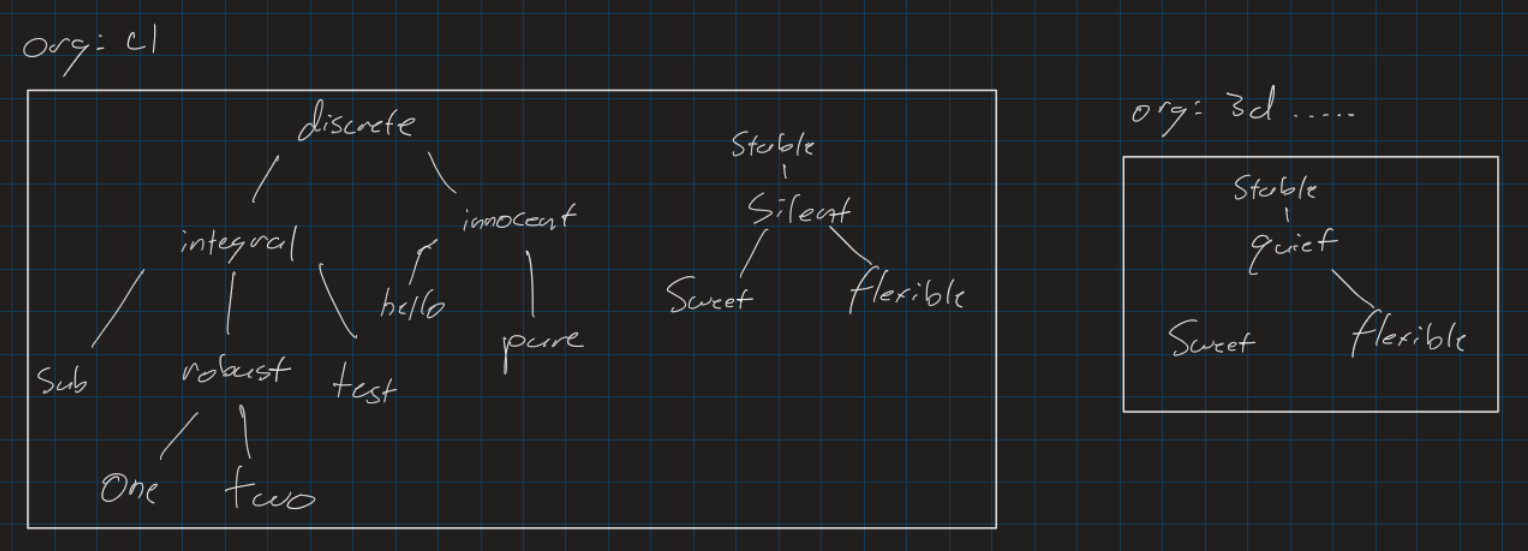 org: c1
discrete
integral innocent
hello
pure
sub robust test
one two
Stable
Silent
Sweet flexible
org: 3d .....
Stable
quiet
Sweet flexible